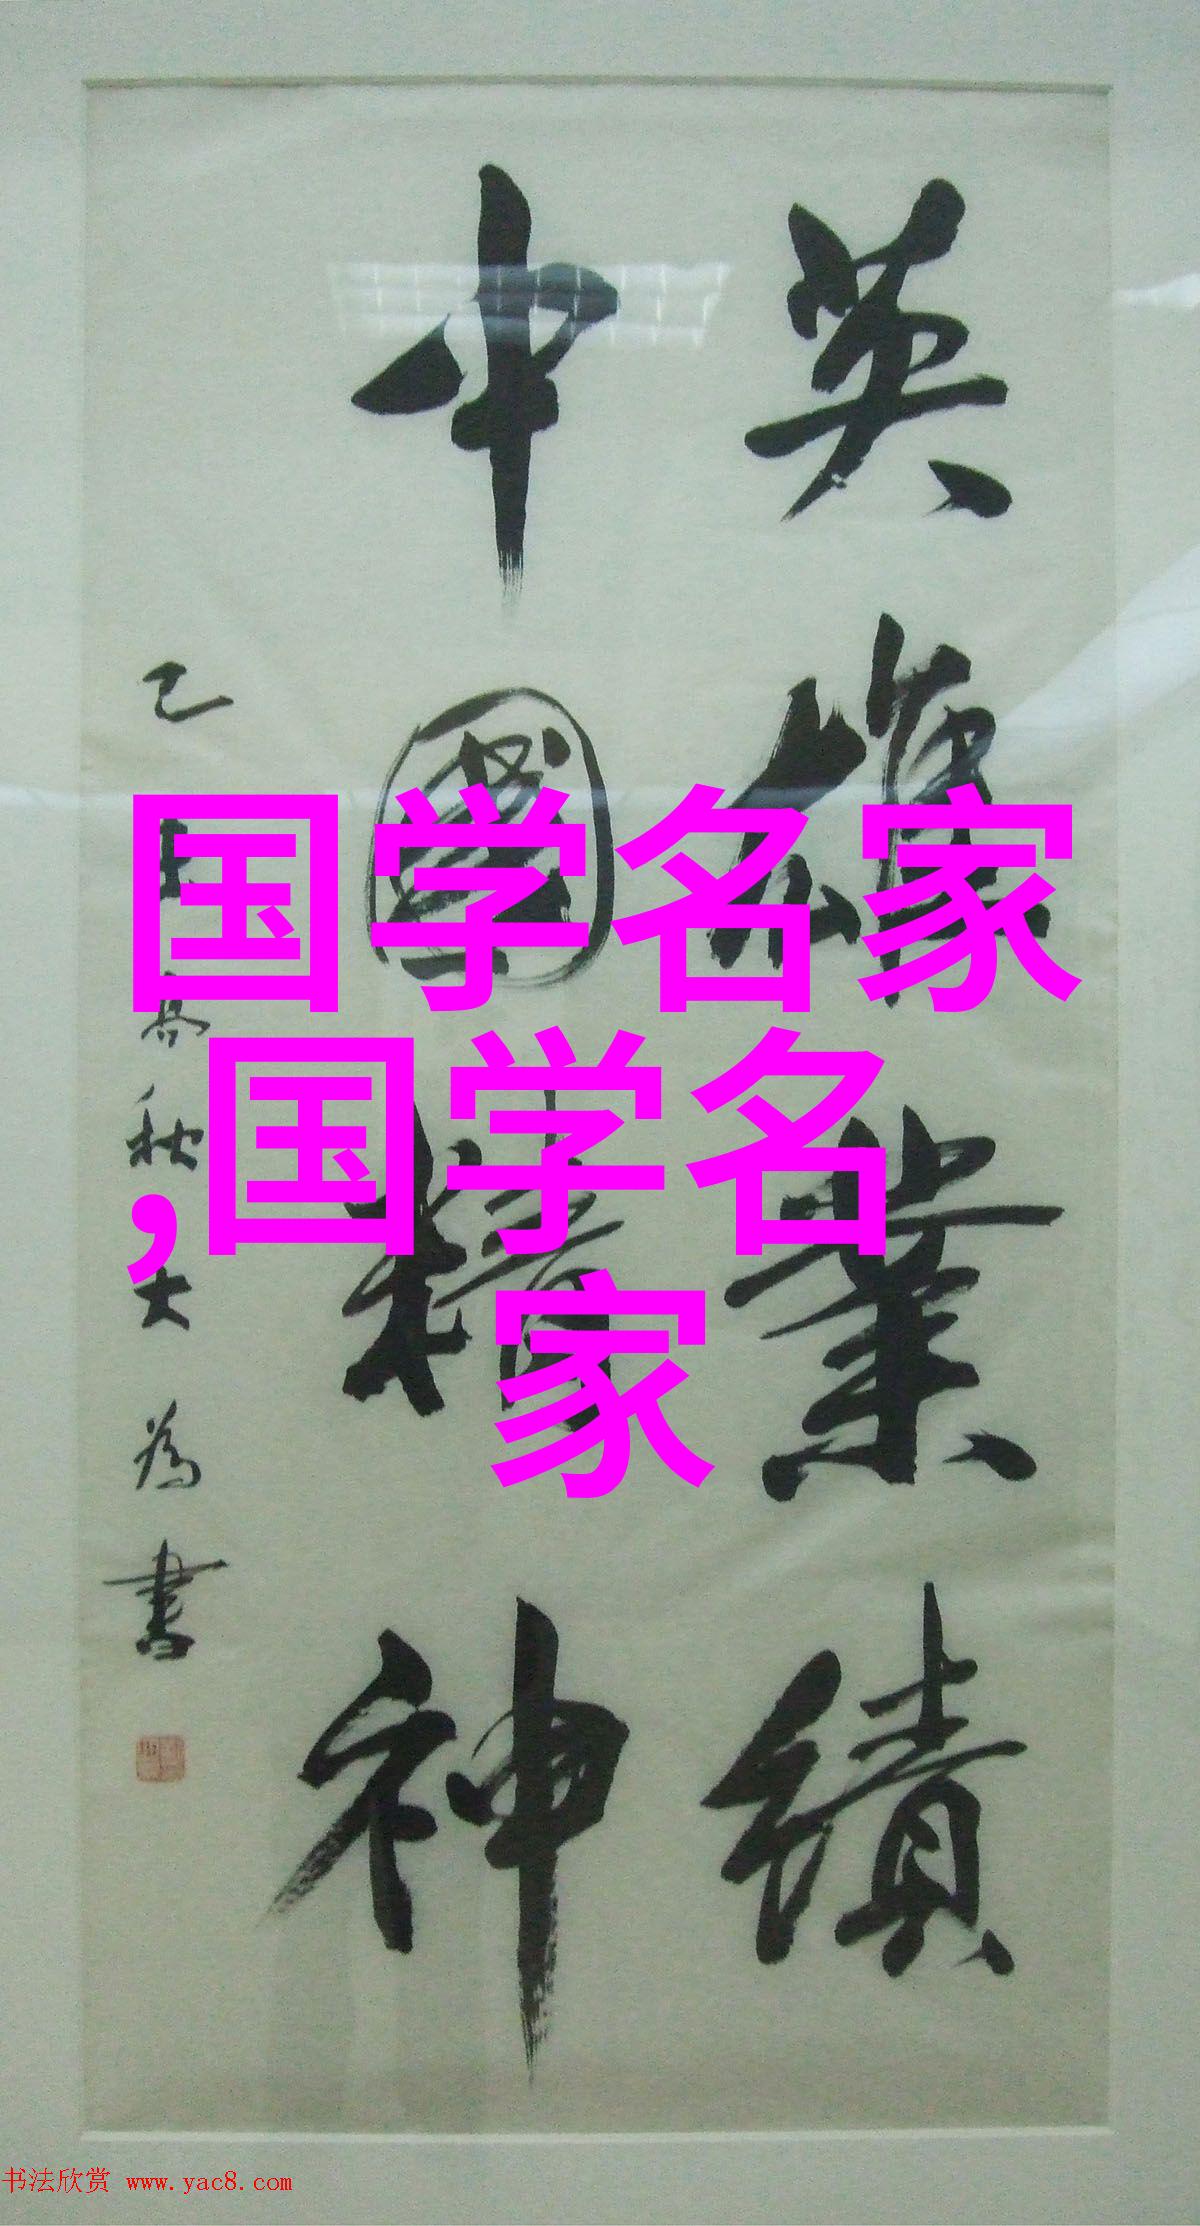 英雄業績
中國精神
己高秋大為書
国学名家
,国学名
家
书法欣赏 www.yac8.com